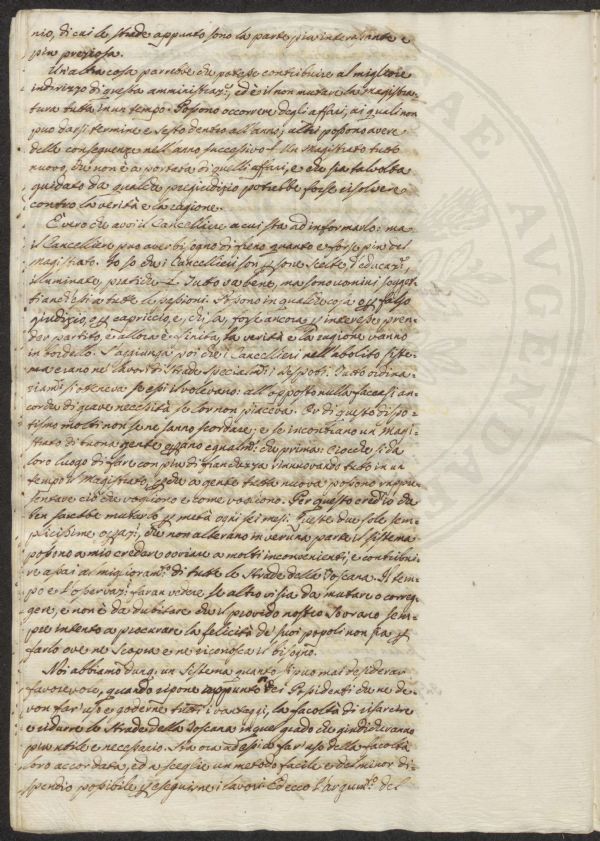 nio, di cui le strade appunto sono la parte piu interessante e
piu preziosa.
Un'altra cosa parrebbe che potesse contribuire al migliore
indirizzo di questa amministraz:, ed è il non mutare la magistra=
tura tutta in un tempo. Possono occorrere degli affari, ai quali non
può darsi termine e sesto dentro all'anno; altri possono avere
delle conseguenze nell'anno successivo. Un Magistrato tutto
nuovo, che non è a portata di quelli affari, e che sia talvolta
guidato da qualche pregiudizio potrebbe forse risolvere
contro la verità e la ragione.
È vero che avvi il Cancelliere a cui sta ad informarlo: ma
il Cancelliere può averbi, ogno di meno quanto e forse piu del
Magistrato. Io so che i Cancellieri son persone scelte d'educaz:,
illuminate, pratiche. Tutto va bene, ma sono uomini sogget=
ti anch'essi a tutte le passioni. Se sono in qualche cosa o per falso
giudizio, o per capriccio, e, chi sa, forse ancora per interesse pren=
don partito, è allora è finita, la verità e la ragione vanno
in bordello. S'aggiunga poi che i Cancellieri nell'abolito siste=
ma erano ne' lavori di strade specialm: i despoti. Tutto ordina=
riam: si otteneva se essi il volevano: all'opposto nulla facevasi an=
corchè di grave necessità se lor non piaceva. Or di questo dispo=
tismo molti non se ne sanno scordare; e se incontrano un Magi=
strato di buona gente operano egualm: che prima. Ciocche si dà
loro luogo di fare con piu di franchezza rinnuovando tutto in un
tempo il Magistrato, perche a gente tutta nuova possono rappre=
sentare ciò che vogliono e come vogliono. Per questo credo che
ben sarebbe mutarlo per metà ogni sei mesi. Queste due sole sem=
plicissime operaz:, che non alterano in veruna parte il sistema
possono a mio credere ovviare a molti inconvenienti, e contribui=
re assai al miglioram:to di tutte le Strade della Toscana. Il tem=
po e l'osservaz: faran vedere se altro vi sia da mutare o correg=
gere, e non è da dubitare che il provido nostro Sovrano sem=
pre intento a procurare la felicità de' suoi popoli non sia per
farlo ove ne scopra e ne riconosca il bisogno.
Noi abbiamo dunq: un Sistema quanto si può mai desiderar
favorevole, quando ripone appunto ne' Possidenti che ne de=
von far uso e goderne tutti i vantaggi, la facoltà di risarcire
e ridurre le Strade della Toscana in quel grado che giudicheranno
piu utile e necessario. Sta ora ad essi a far uso della facoltà
loro accordata, ed a scegliere un metodo facile e del minor di=
spendio possibile per eseguirne i lavori. Ed ecco l'argum:to del